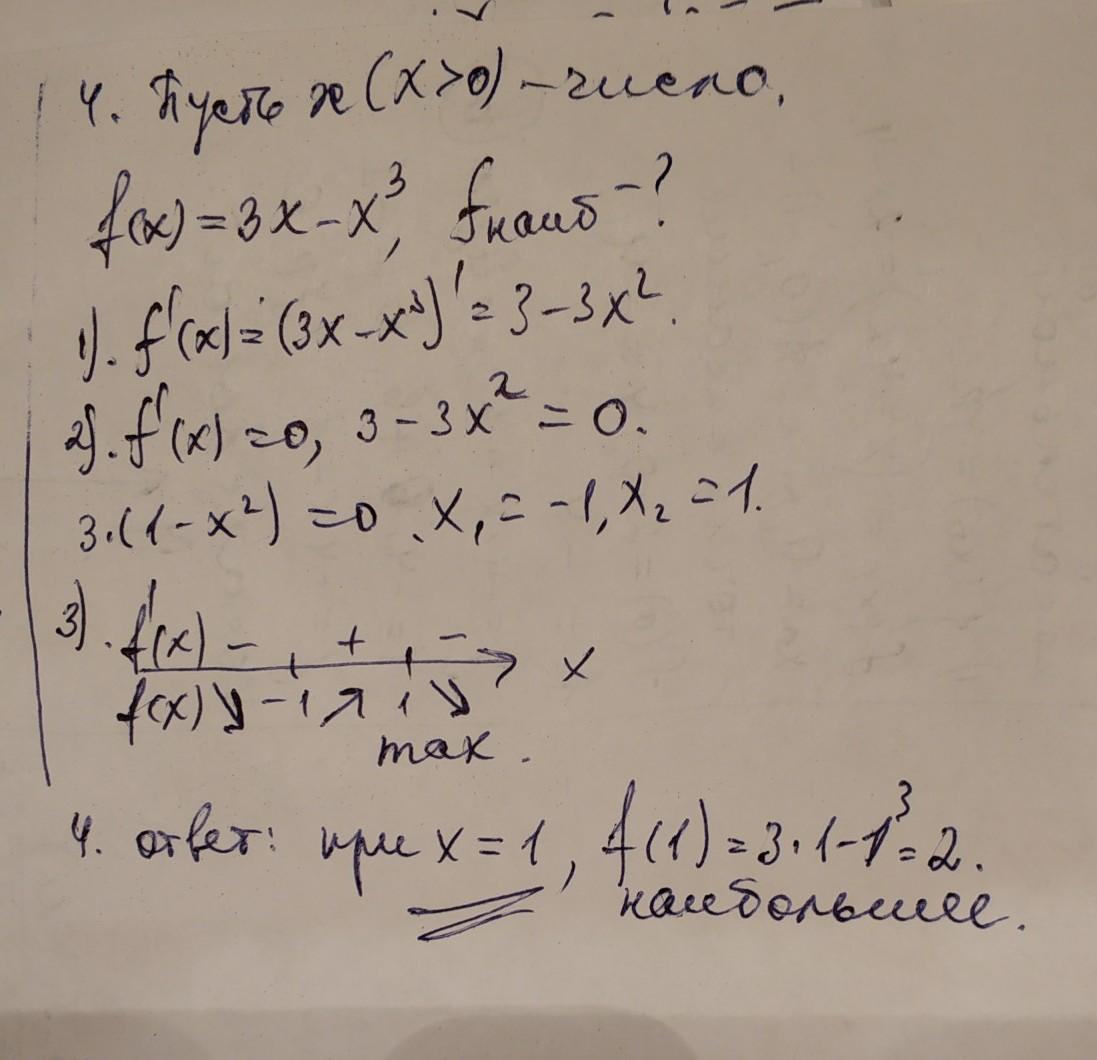 4. Пусть x (x>0) – число.
f(x) = 3x – x³, fнаиб – ?
1). f'(x) = (3x – x³)' = 3 – 3x².
2). f'(x) = 0, 3 – 3x² = 0.
3·(1 – x²) = 0. x₁ = -1, x₂ = 1.
3). f'(x) – + – x
f(x) ↘ -1 ↗ 1 ↘
max.
4. ответ: при x = 1, f(1) = 3·1 – 1³ = 2.
наибольшее.